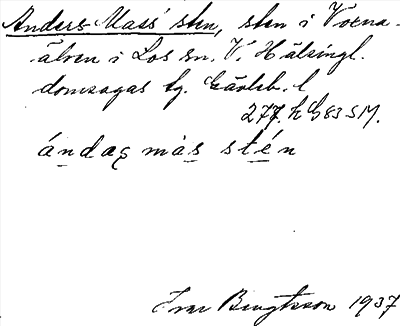 Anders-Mass' sten, sten i Voxna-
älven i Los sn. V. Hälsingl.
domsagas tg. Gävleb. l
277. h G83 SM.
ándaṣ màs stén
Ivar Bengtsson 1937